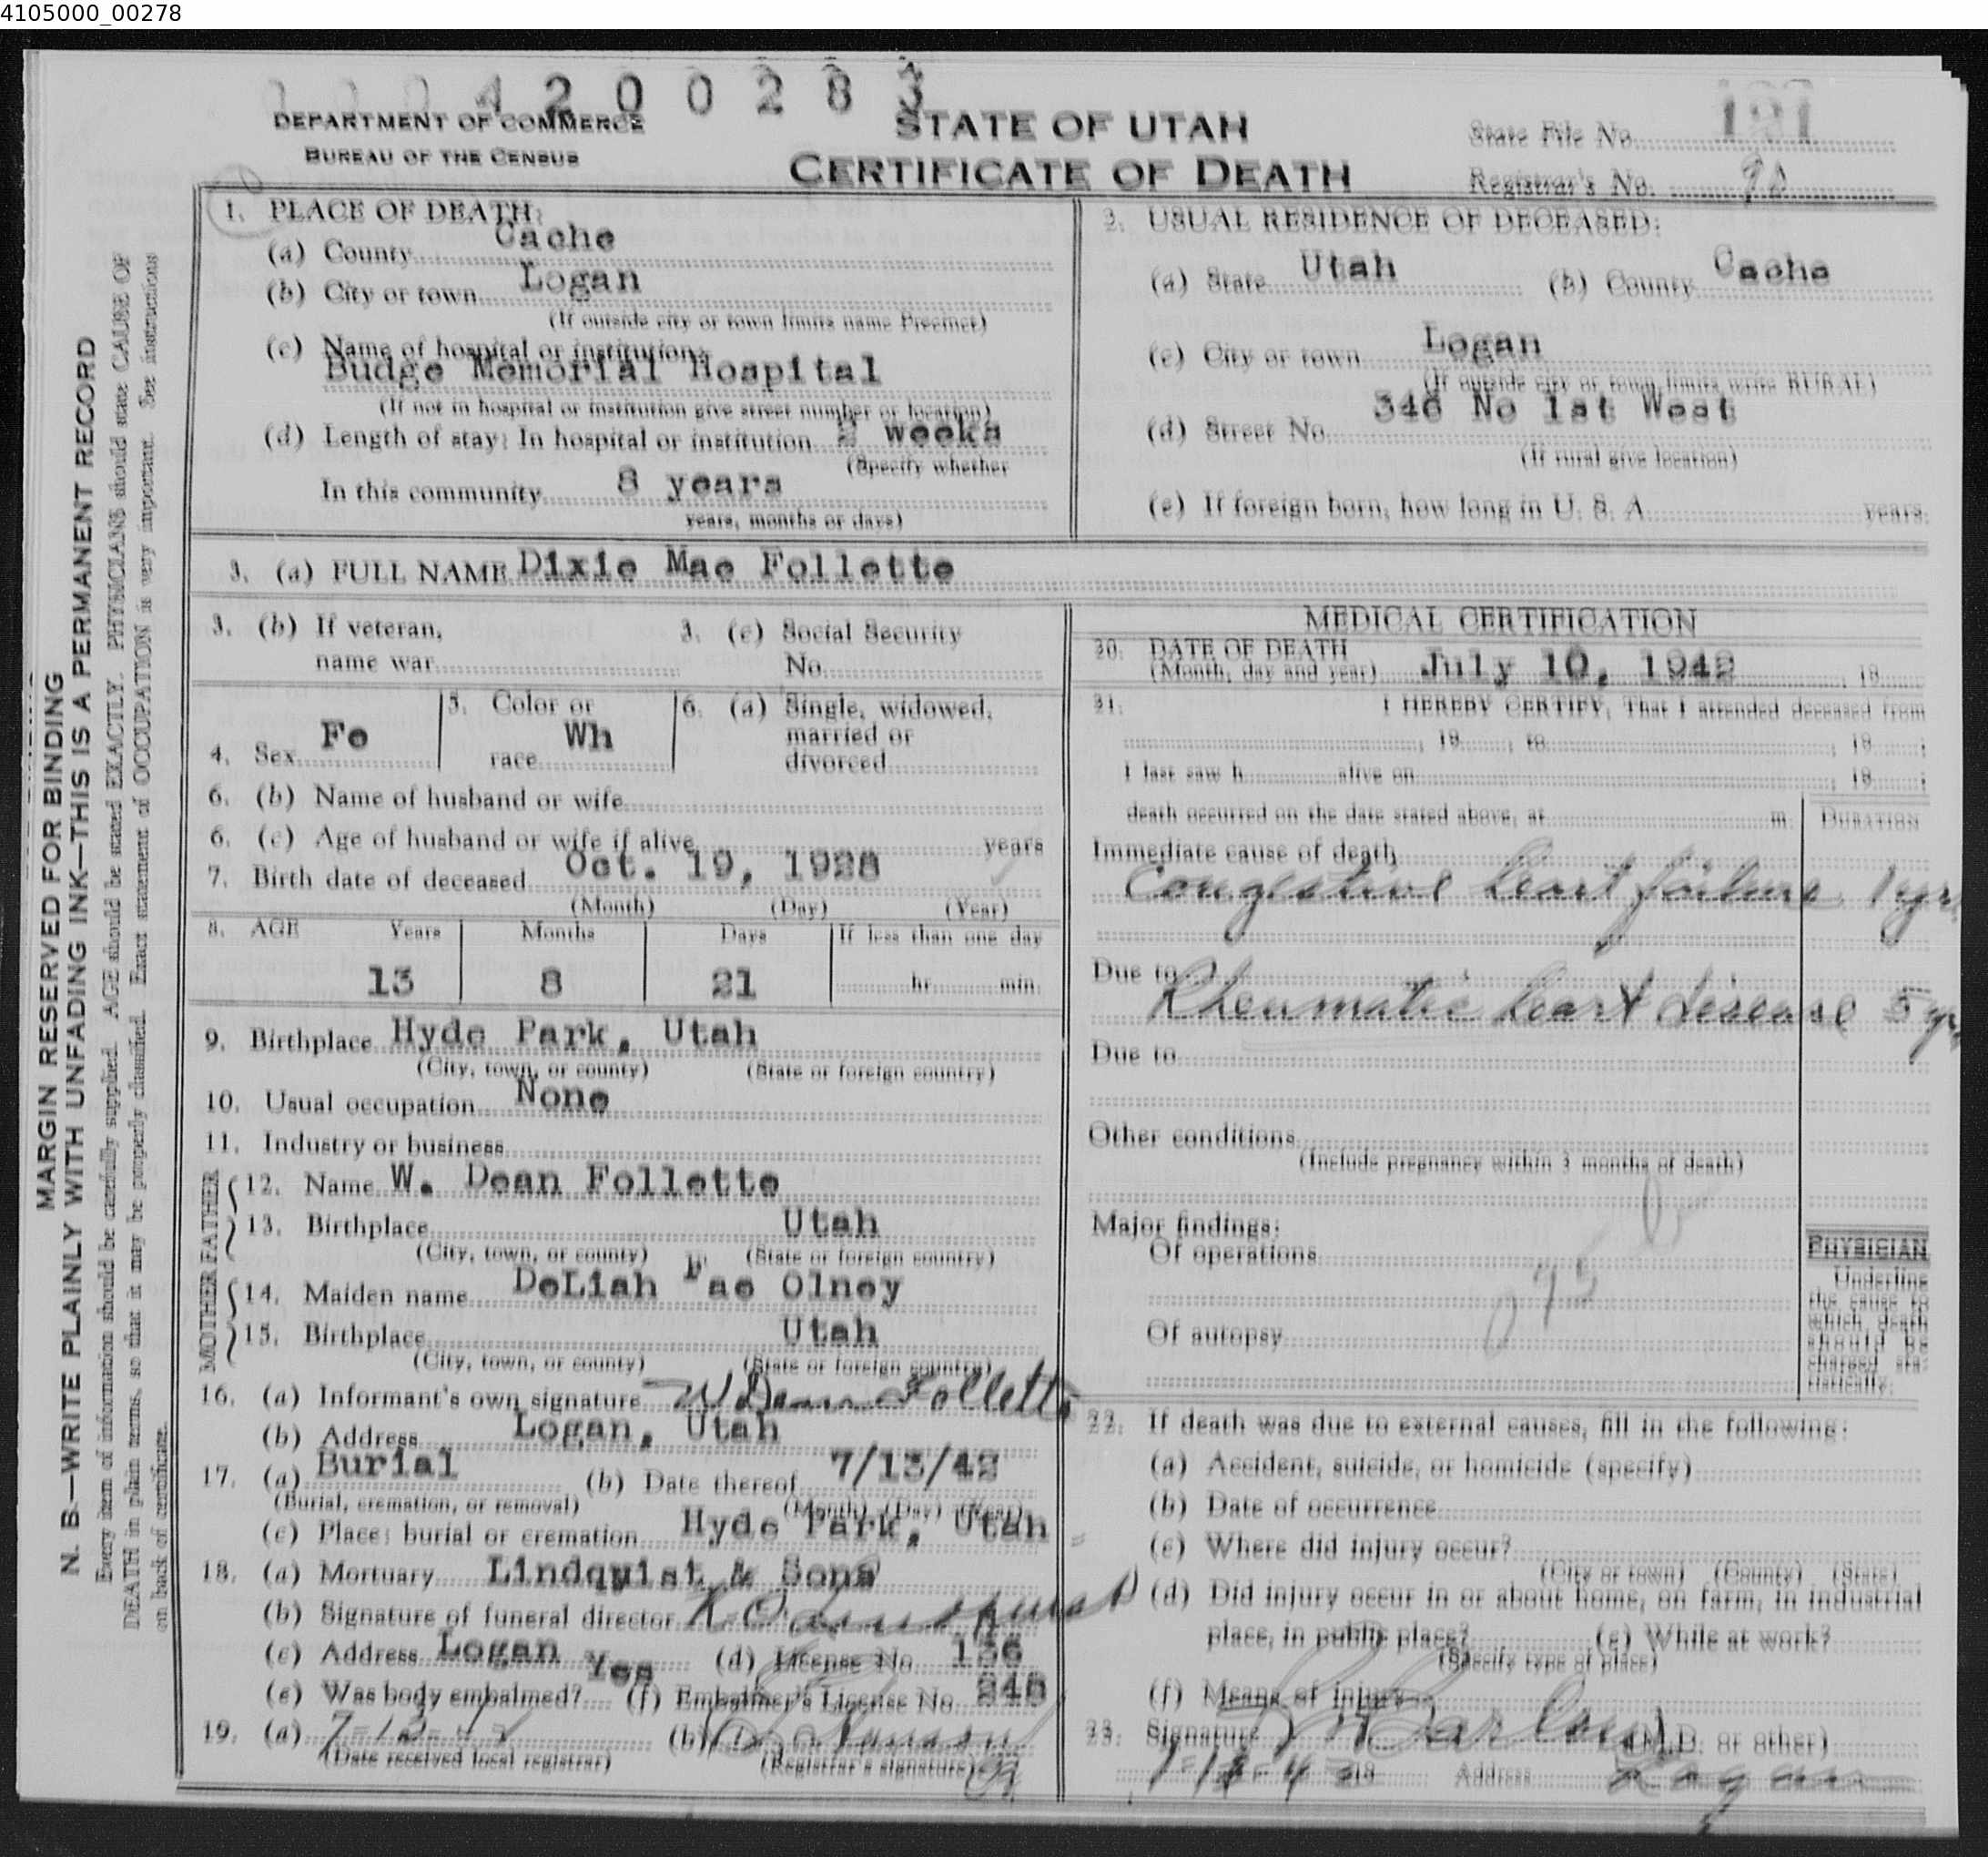 4105000_00278
4 2 0 0 2 8 3
DEPARTMENT OF COMMERCE
BUREAU OF THE CENSUS
STATE OF UTAH
CERTIFICATE OF DEATH
State File No.
Registrar's No.
1. PLACE OF DEATH:
(a) County Cache
(b) City or town Logan
(If outside city or town limits name Precinct)
(c) Name of hospital or institution:
Budge Memorial Hospital
(If not in hospital or institution give street number or location)
(d) Length of stay: In hospital or institution 2 weeks
(Specify whether
In this community 8 years
years, months or days)
2. USUAL RESIDENCE OF DECEASED:
(a) State Utah (b) County Cache
(c) City or town Logan
(If outside city or town limits write RURAL)
(d) Street No. 346 No 1st West
(If rural give location)
(e) If foreign born, how long in U. S. A. years.
3. (a) FULL NAME Dixie Mae Follette
3. (b) If veteran,
name war
3. (c) Social Security
No.
4. Sex Fe
5. Color or
race Wh
6. (a) Single, widowed,
married or
divorced
6. (b) Name of husband or wife
6. (c) Age of husband or wife if alive years
7. Birth date of deceased Oct. 19, 1928
(Month) (Day) (Year)
8. AGE Years Months Days If less than one day
13 8 21 hr. min.
9. Birthplace Hyde Park, Utah
(City, town, or county) (State or foreign country)
10. Usual occupation None
11. Industry or business
FATHER
12. Name W. Dean Follette
13. Birthplace Utah
(City, town, or county) (State or foreign country)
MOTHER
14. Maiden name DeLiah Fae Olney
15. Birthplace Utah
(City, town, or county) (State or foreign country)
16. (a) Informant's own signature W Dean Follette
(b) Address Logan, Utah
17. (a) Burial (b) Date thereof 7/13/42
(Burial, cremation, or removal) (Month) (Day) (Year)
(c) Place: burial or cremation Hyde Park, Utah
18. (a) Mortuary Lindquist & Sons
(b) Signature of funeral director
(c) Address Logan (d) License No. 156
(e) Was body embalmed? Yes (f) Embalmer's License No. 248
19. (a) 7-12-42 (b)
(Date received local registrar) (Registrar's signature)
MEDICAL CERTIFICATION
20. DATE OF DEATH
(Month, day and year) July 10, 1942 , 19
21. I HEREBY CERTIFY, That I attended deceased from
, 19 ; to , 19 ;
I last saw h alive on , 19 ;
death occurred on the date stated above, at m.
DURATION
Immediate cause of death
Congestive heart failure 1 yr
Due to
Rheumatic heart disease 5 yrs
Due to
Other conditions
(Include pregnancy within 3 months of death)
Major findings:
Of operations
Of autopsy
PHYSICIAN
Underline
the cause to
which death
should be
charged sta-
tistically.
22. If death was due to external causes, fill in the following:
(a) Accident, suicide, or homicide (specify)
(b) Date of occurrence
(c) Where did injury occur?
(City or town) (County) (State)
(d) Did injury occur in or about home, on farm, in industrial
place, in public place? (e) While at work?
(Specify type of place)
(f) Means of injury
23. Signature (M.D. or other)
19 Address Logan
MARGIN RESERVED FOR BINDING
N. B.—WRITE PLAINLY WITH UNFADING INK—THIS IS A PERMANENT RECORD
Every item of information should be carefully supplied. AGE should be stated EXACTLY. PHYSICIANS should state CAUSE OF
DEATH in plain terms, so that it may be properly classified. Exact statement of OCCUPATION is very important. See instructions
on back of certificate.